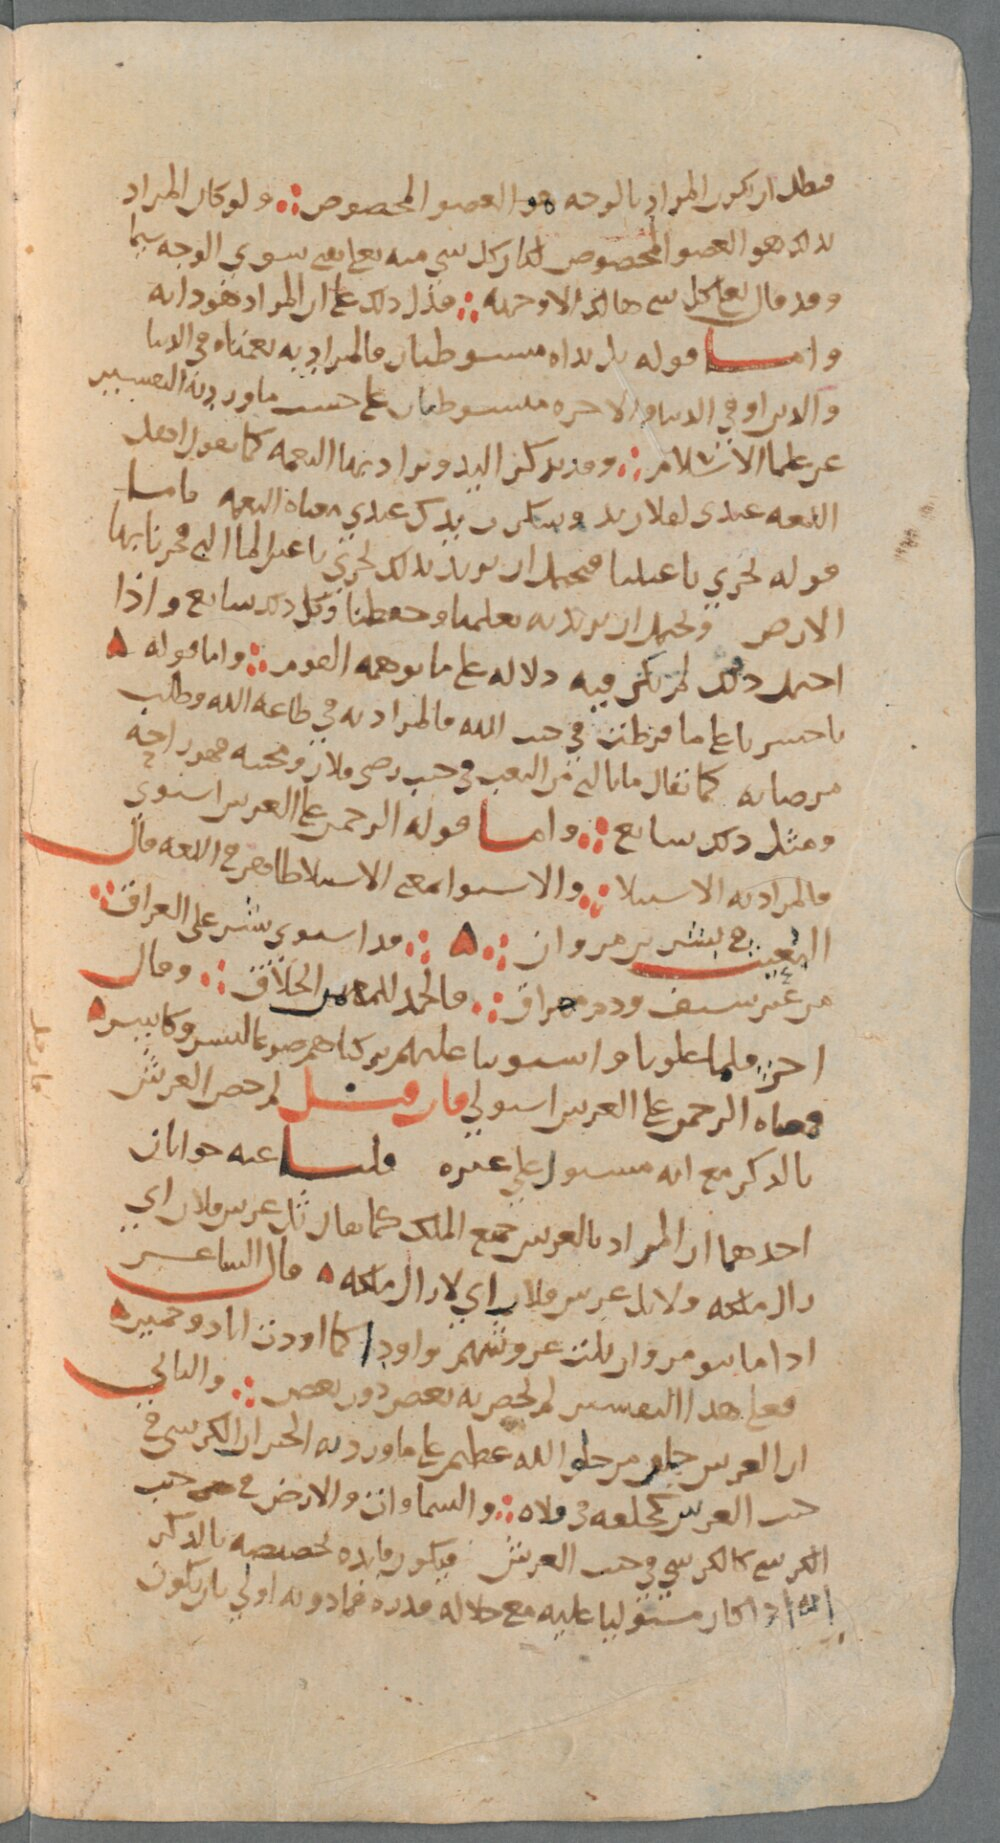 فبطل ان يكون المراد بالوجه هو العضو المخصوص ؞ ولو كان المراد
بذلك هو العضو المخصوص لكان كل شي منه تعالى يفنى سوى الوجه سيما
وقد قال تعالى كل شي هالك الا وجهه ؞ فدل ذلك على ان المراد هو ذاته
واما قوله بل يداه مبسوطتان فالمراد به نعمتاه في الدنيا
والدين او في الدنيا والاخره مبسوطتان على حسب ما ورد به التفسير
عن علما الاسلام ؞ وقد يذكر اليد ويراد بها النعمه كما يقول اهل
اللغه عندي لفلان يد ويشكرون يدك عندي معناه النعمه فاما
قوله تجري باعيننا فيحتمل ان يريد بذلك تجري باعين الما التي فجرنا بها
الارض ويحتمل ان يريد به بعلمنا وحفظنا وكل ذلك سايغ واذا
احتمل ذلك لم يكن فيه دلاله على ما توهمه القوم ؞ واما قوله ه
يا حسرتا على ما فرطت في جنب الله فالمراد به في طاعه الله وطلب
مرضاته كما يقال ما نالني من التعب في جنب رضى فلان ومحبته فهو راحه
ومثل ذلك سايغ ؞ واما قوله الرحمن على العرش استوى
فالمراد به الاستيلا ؞ والاستوا بمعنى الاستيلا ظاهر في اللغه قال
البعيث في بشر بن مروان ؞ ه ؞ قد استوى بشر على العراق ؞
من غير سيف ودم مهراق ؞ فالحمد للمهيمن الخلاق ؞ وقال
اخر فلما علونا واستوينا عليهم تركناهم صرعى لنسر وكاسر ه
فمعناه الرحمن على العرش استولى فان قيل لم خص العرش
بالذكر مع انه مستول على غيره قلنا عنه جوابان
احدهما ان المراد بالعرش جميع الملك كما يقال ثل عرش فلان اي
زال ملكه ولا يثل عرش فلان اي لا زال ملكه ه قال الشاعر
اذا ما بنو مروان ثلت عروشهم واودوا كما اودت اياد وحمير ه
فعلى هذا التفسير لم يخص به بعض دون بعض ؞ والثاني
ان العرش خلق من خلق الله عظيم على ما ورد به الخبر ان الكرسي في
جنب العرش كحلقه في فلاه ؞ والسماوات والارض في جنب
الكرسي كالكرسي في جنب العرش فيكون فايده تخصيصه بالذكر
انه اذا كان مستوليا عليه مع جلاله قدره فما دونه اولى بان يكون
فان قيل